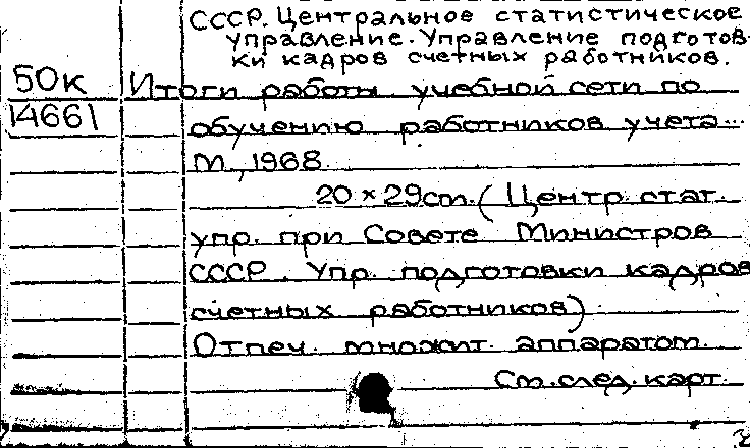 СССР. Центральное статистическое
управление. Управление подготов-
ки кадров счетных работников.
50к Итоги работы учебной сети по
14661 обучению работников учета...
М., 1968.
20 × 29 cm. (Центр. стат.
упр. при Совете Министров
СССР. Упр. подготовки кадров
счетных работников).
Отпеч. множит. аппаратом.
См. след. карт.